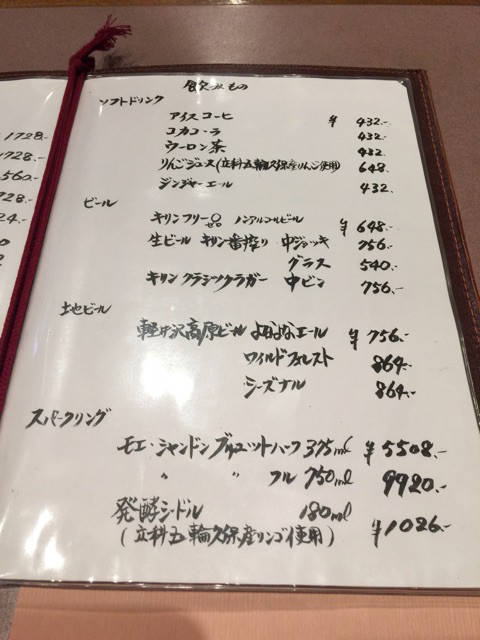 1728.-
1728.-
560.-
728.-
24.-
飲みもの
ソフトドリンク
アイスコーヒ ¥ 432.-
コカコーラ 432.-
ウーロン茶 432.
りんごジュース(立科五輪久保産りんご使用) 648.
ジンジャーエール 432.-
ビール
キリンフリー ゼロ ノンアルコールビール ¥648.-
生ビール キリン一番搾り 中ジョッキ 756.-
グラス 540.-
キリン クラシックラガー 中ビン 756.-
地ビール
軽井沢高原ビール よなよなエール ¥ 756.-
ワイルドフォレスト 864.-
シーズナル 864.-
スパークリング
モエ・シャンドン ブリュットハーフ 375ml ¥5508.-
〃 〃 フル 750ml 9920.-
発酵シードル 180ml ¥1026.-
(立科五輪久保産リンゴ使用)